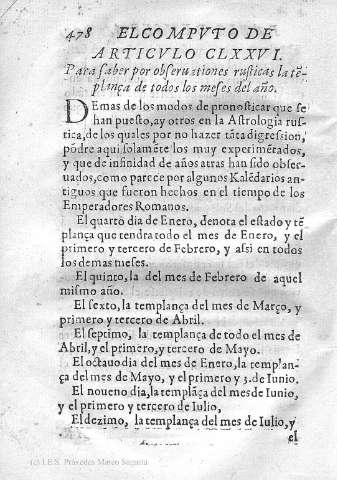 478 EL COMPVTO DE
ARTICVLO CLXXVI.
Para saber por obseruationes rusticas la tẽ-
plança de todos los meses del año.
DEmas de los modos de pronosticar que se
han puesto, ay otros en la Astrologia rus-
tica, de los quales por no hazer tãta digression,
põdre aqui solamẽte los muy experimẽtados,
y que de infinidad de años atras han sido obser-
uados, como parece por algunos Kalẽdarios an-
tiguos que fueron hechos en el tiempo de los
Emperadores Romanos.
El quarto dia de Enero, denota el estado y tẽ
plança que tendra todo el mes de Enero, y el
primero y tercero de Febrero, y assi en todos
los demas meses.
El quinto, la del mes de Febrero de aquel
mismo año.
El sexto, la templança del mes de Março, y
primero y tercero de Abril.
El septimo, la templança de todo el mes de
Abril, y el primero, y tercero de Mayo.
El octauo dia del mes de Enero, la templan-
ça del mes de Mayo, y el primero y 3. de Iunio.
El noueno dia, la templãça del mes de Iunio,
y el primero y tercero de Iulio,
El dezimo, la templança del mes de Iulio, y
el
(c) I.E.S. Práxedes Mateo Sagasta